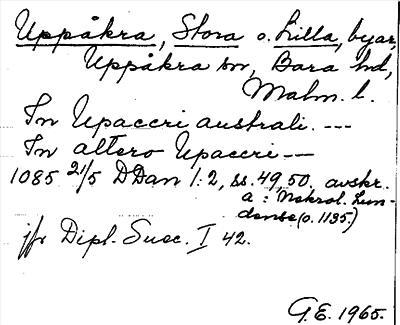 Uppåkra, Stora o. Lilla, byar,
Uppåkra sn, Bara hd,
Malm. l.
In Upaccri australi. ---
In altero Upaccri —
1085 21/5 DDan 1:2, ss. 49, 50. avskr.
a : Nekrol. Lun-
dense (o. 1135.)
jfr Dipl. Suec. I 42.
G.E. 1965.